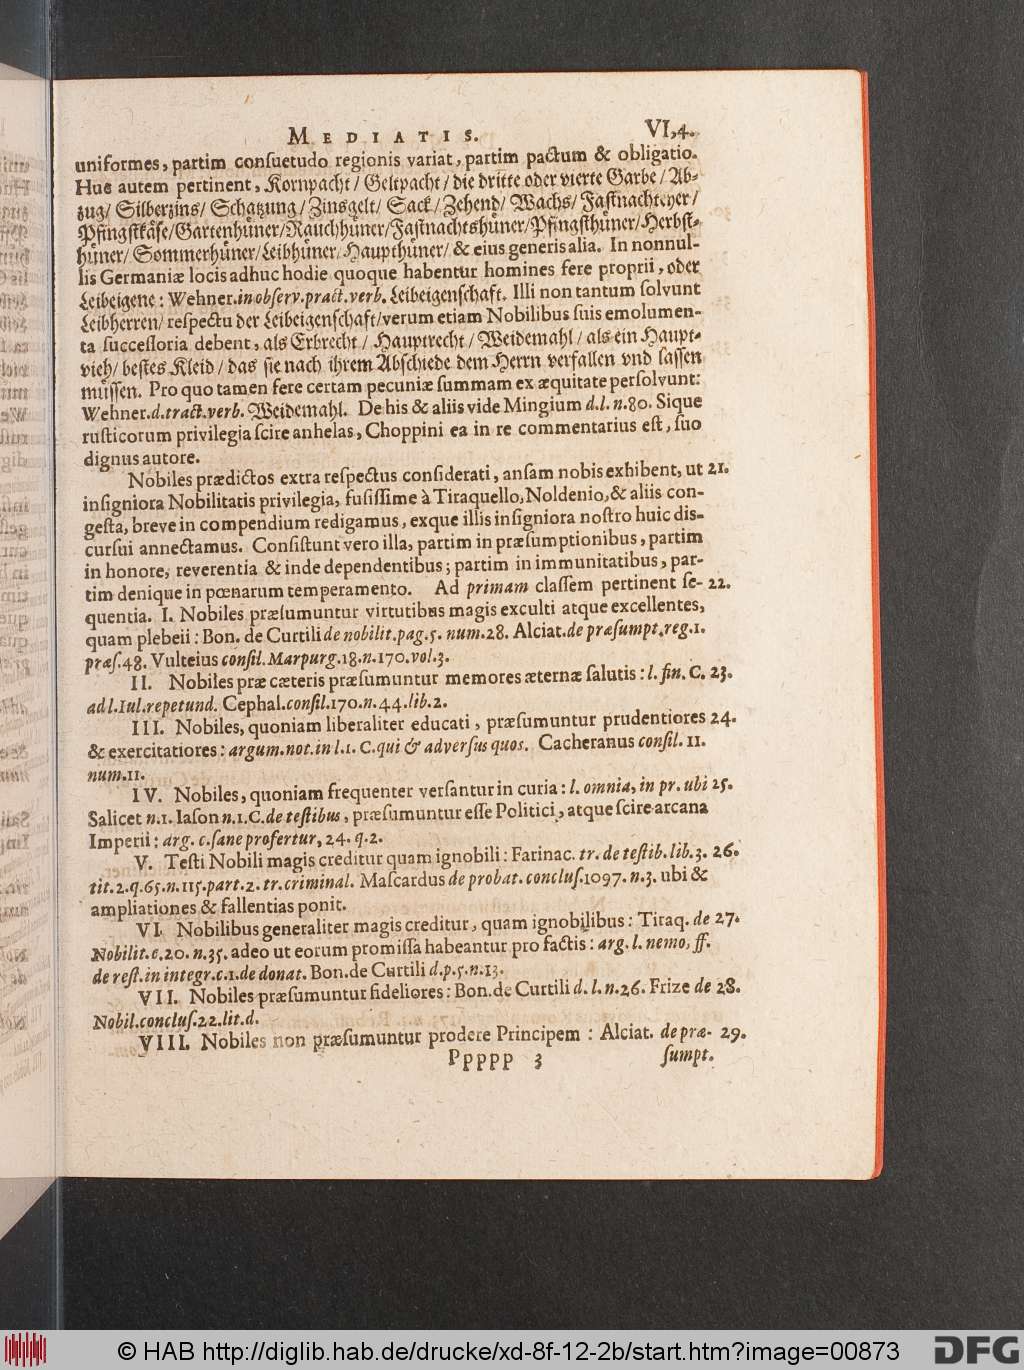 MEDIATIS. VI,4.
uniformes, partim consuetudo regionis variat, partim pactum & obligatio.
Huc autem pertinent, Kornpacht/ Geltpacht/ die dritte oder vierte Garbe/ Ab-
zug/ Silberzins/ Schatzung/ Zinsgelt/ Sack/ Zehend/ Wachs/ Fastnachteyer/
Pfingstkäse/ Gartenhüner/ Rauchhüner/ Fastnachtshüner/ Pfingsthüner/ Herbst-
hüner/ Sommerhüner/ Leibhüner/ Haupthüner/ & eius generis alia. In nonnul-
lis Germaniæ locis adhuc hodie quoque habentur homines fere proprii, oder
Leibeigene: Wehner. in observ. pract. verb. Leibeigenschaft. Illi non tantum solvunt
Leibherren/ respectu der Leibeigenschaft/ verum etiam Nobilibus suis emolumen-
ta successoria debent, als Erbrecht/ Hauptrecht/ Weidemahl/ als ein Haupt-
vieh/ bestes Kleid/ das sie nach ihrem Abschiede dem Herrn verfallen vnd lassen
müssen. Pro quo tamen fere certam pecuniæ summam ex æquitate persolvunt:
Wehner. d. tract. verb. Weidemahl. De his & aliis vide Mingium d. l. n. 80. Sique
rusticorum privilegia scire anhelas, Choppini ea in re commentarius est, suo
dignus autore.
Nobiles prædictos extra respectus considerati, ansam nobis exhibent, ut 21.
insigniora Nobilitatis privilegia, fusissime à Tiraquello, Noldenio, & aliis con-
gesta, breve in compendium redigamus, exque illis insigniora nostro huic dis-
cursui annectamus. Consistunt vero illa, partim in præsumptionibus, partim
in honore, reverentia & inde dependentibus; partim in immunitatibus, par-
tim denique in pœnarum temperamento. Ad primam classem pertinent se- 22.
quentia. I. Nobiles præsumuntur virtutibus magis exculti atque excellentes,
quam plebeii: Bon. de Curtili de nobilit. pag. 5. num. 28. Alciat. de præsumpt. reg. 1.
præs. 48. Vulteius consil. Marpurg. 18. n. 170. vol. 3.
II. Nobiles præ cæteris præsumuntur memores æternæ salutis: l. fin. C. 23.
ad l. Iul. repetund. Cephal. consil. 170. n. 44. lib. 2.
III. Nobiles, quoniam liberaliter educati, præsumuntur prudentiores 24.
& exercitatiores: argum. not. in l. 1. C. qui & adversus quos. Cacheranus consil. 11.
num. 11.
IV. Nobiles, quoniam frequenter versantur in curia: l. omnia, in pr. ubi 25.
Salicet n. 1. Iason n. 1. C. de testibus, præsumuntur esse Politici, atque scire arcana
Imperii: arg. c. sane profertur, 24. q. 2.
V. Testi Nobili magis creditur quam ignobili: Farinac. tr. de testib. lib. 3. 26.
tit. 2. q. 65. n. 115. part. 2. tr. criminal. Mascardus de probat. conclus. 1097. n. 3. ubi &
ampliationes & fallentias ponit.
VI. Nobilibus generaliter magis creditur, quam ignobilibus: Tiraq. de 27.
Nobilit. c. 20. n. 35. adeo ut eorum promissa habeantur pro factis: arg. l. nemo, ff.
de rest. in integr. c. 1. de donat. Bon. de Curtili d. p. 5. n. 13.
VII. Nobiles præsumuntur fideliores: Bon. de Curtili d. l. n. 26. Frize de 28.
Nobil. conclus. 22. lit. d.
VIII. Nobiles non præsumuntur prodere Principem: Alciat. de præ- 29.
Ppppp 3 sumpt.
© HAB http://diglib.hab.de/drucke/xd-8f-12-2b/start.htm?image=00873
DFG